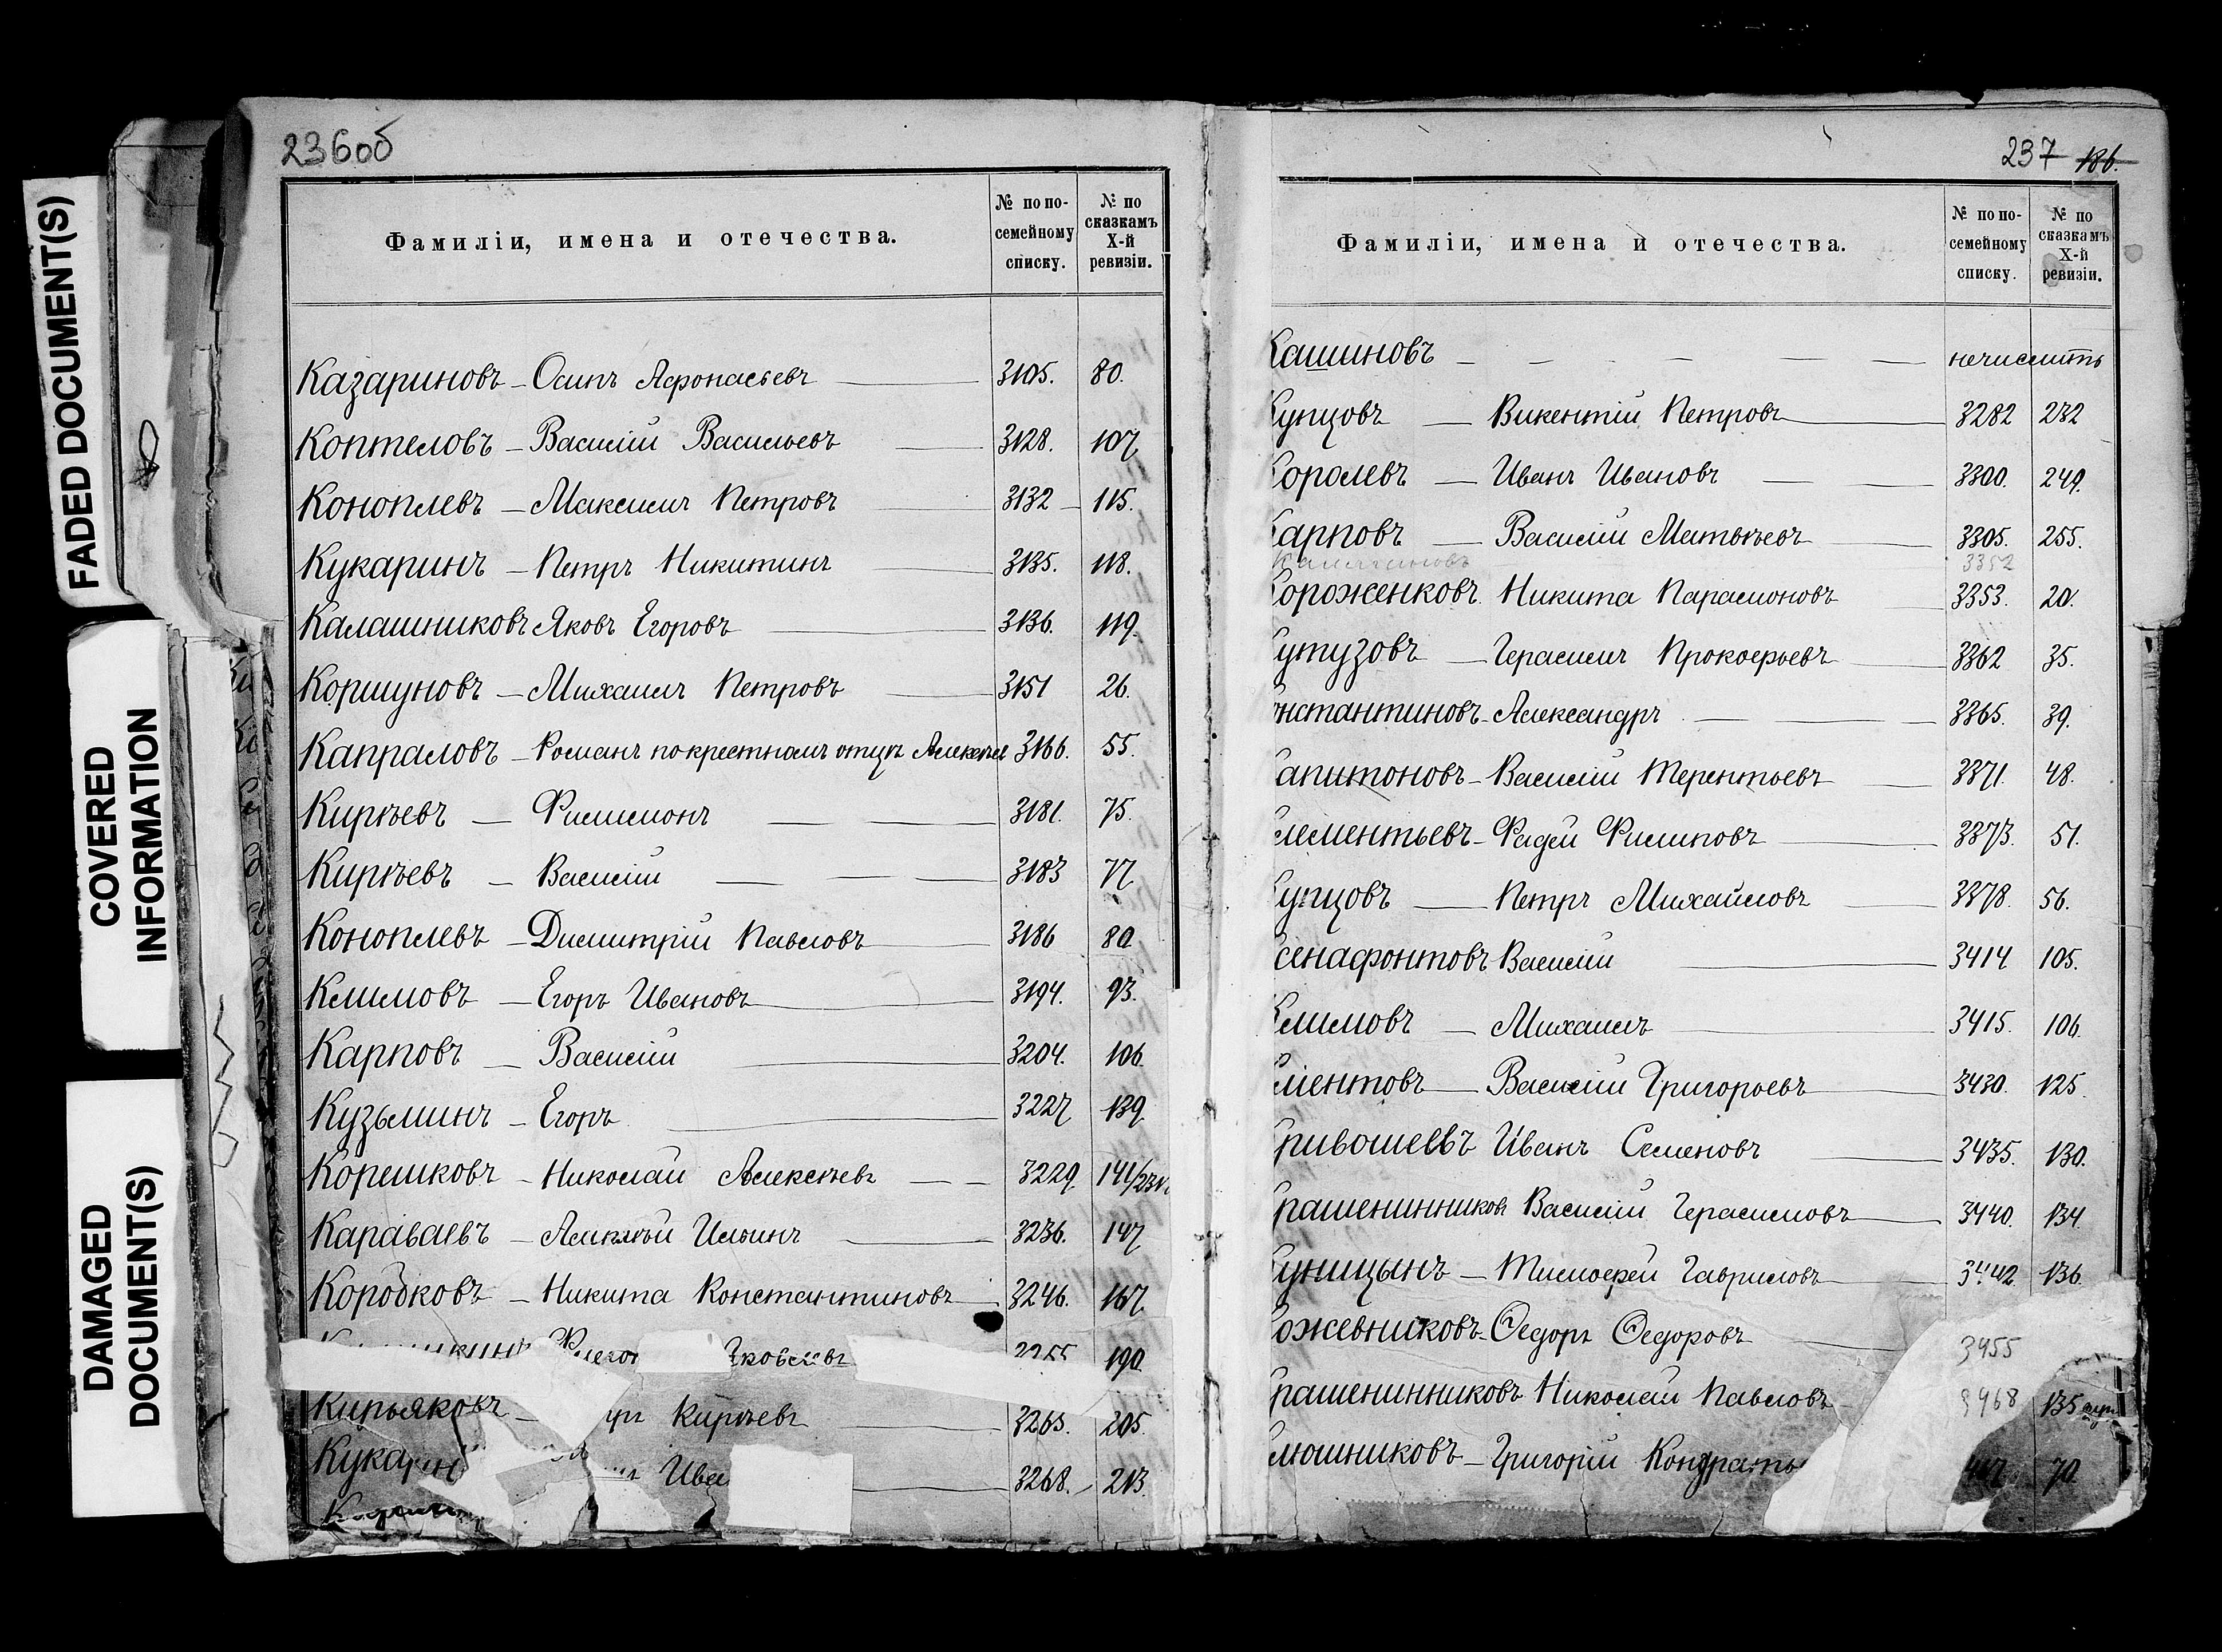 FADED DOCUMENT(S)
COVERED
INFORMATION
DAMAGED
DOCUMENT(S)
236об
Фамиліи, имена и отечества.
№ по по-
семейному
списку.
№ по
сказкамъ
X-й
ревизіи.
Казариновъ – Осипъ Афонасьевъ 3105. 80.
Коптеловъ – Василій Васильевъ 3128. 107
Коноплевъ – Максимъ Петровъ 3132 – 115.
Кукаринъ – Петръ Никитинъ 3135. 118.
Калашниковъ Яковъ Егоровъ 3136. 119.
Коршуновъ – Михаилъ Петровъ 3151 26.
Капраловъ – Романъ по крестномъ отцѣ 3166. 55.
Кирѣевъ – Филимонъ 3181. 75.
Кирѣевъ – Василій 3183 77
Коноплевъ – Димитрій Павловъ 3186 80
Климовъ – Егоръ Ивановъ 3194. 93.
Карповъ – Василій 3204. 106.
Кузьминъ – Егоръ 3227 139
Корешковъ – Николай Алексѣевъ 3229. 141/
Караваевъ – Алексѣй Ильинъ 3236. 147
Коробковъ – Никита Константиновъ 3246. 167
190
Кирьяковъ – Кирѣевъ 3265. 205.
Кукарин Ива 3268. 213.
237 186.
Фамиліи, имена и отечества.
№ по по-
семейному
списку.
№ по
сказкамъ
X-й
ревизіи.
Кашиновъ – – – – – –
Купцовъ – Викентій Петровъ 3282 232
Королевъ – Иванъ Ивановъ 3300. 249.
Карповъ – Василій Матвѣевъ 3305. 255.
3352
Короженковъ Никита Парамоновъ 3353. 20.
Кутузовъ – Герасимъ Прокофьевъ 3362 35.
нстантиновъ – Александръ 3365. 39.
апитоновъ – Василій Терентьевъ 3371. 48.
лементьевъ – Фадѣй Филиповъ 3373. 51.
Купцовъ – Петръ Михайловъ 3378. 56.
сенафонтовъ Василій 3414 105.
Климовъ – Михаилъ 3415. 106.
ментовъ – Василій Григорьевъ 3430. 125.
ривошеевъ Иванъ Семеновъ 3435. 130.
рашенинников Василій Герасимовъ 3440. 134
Куницынъ – Тимофей Гавриловъ 3442. 136
ожевниковъ – Ѳедоръ Ѳедоровъ 3455
рашенинниковъ Николай Павловъ 3468 135
люшниковъ – Григорій Кондрать 70